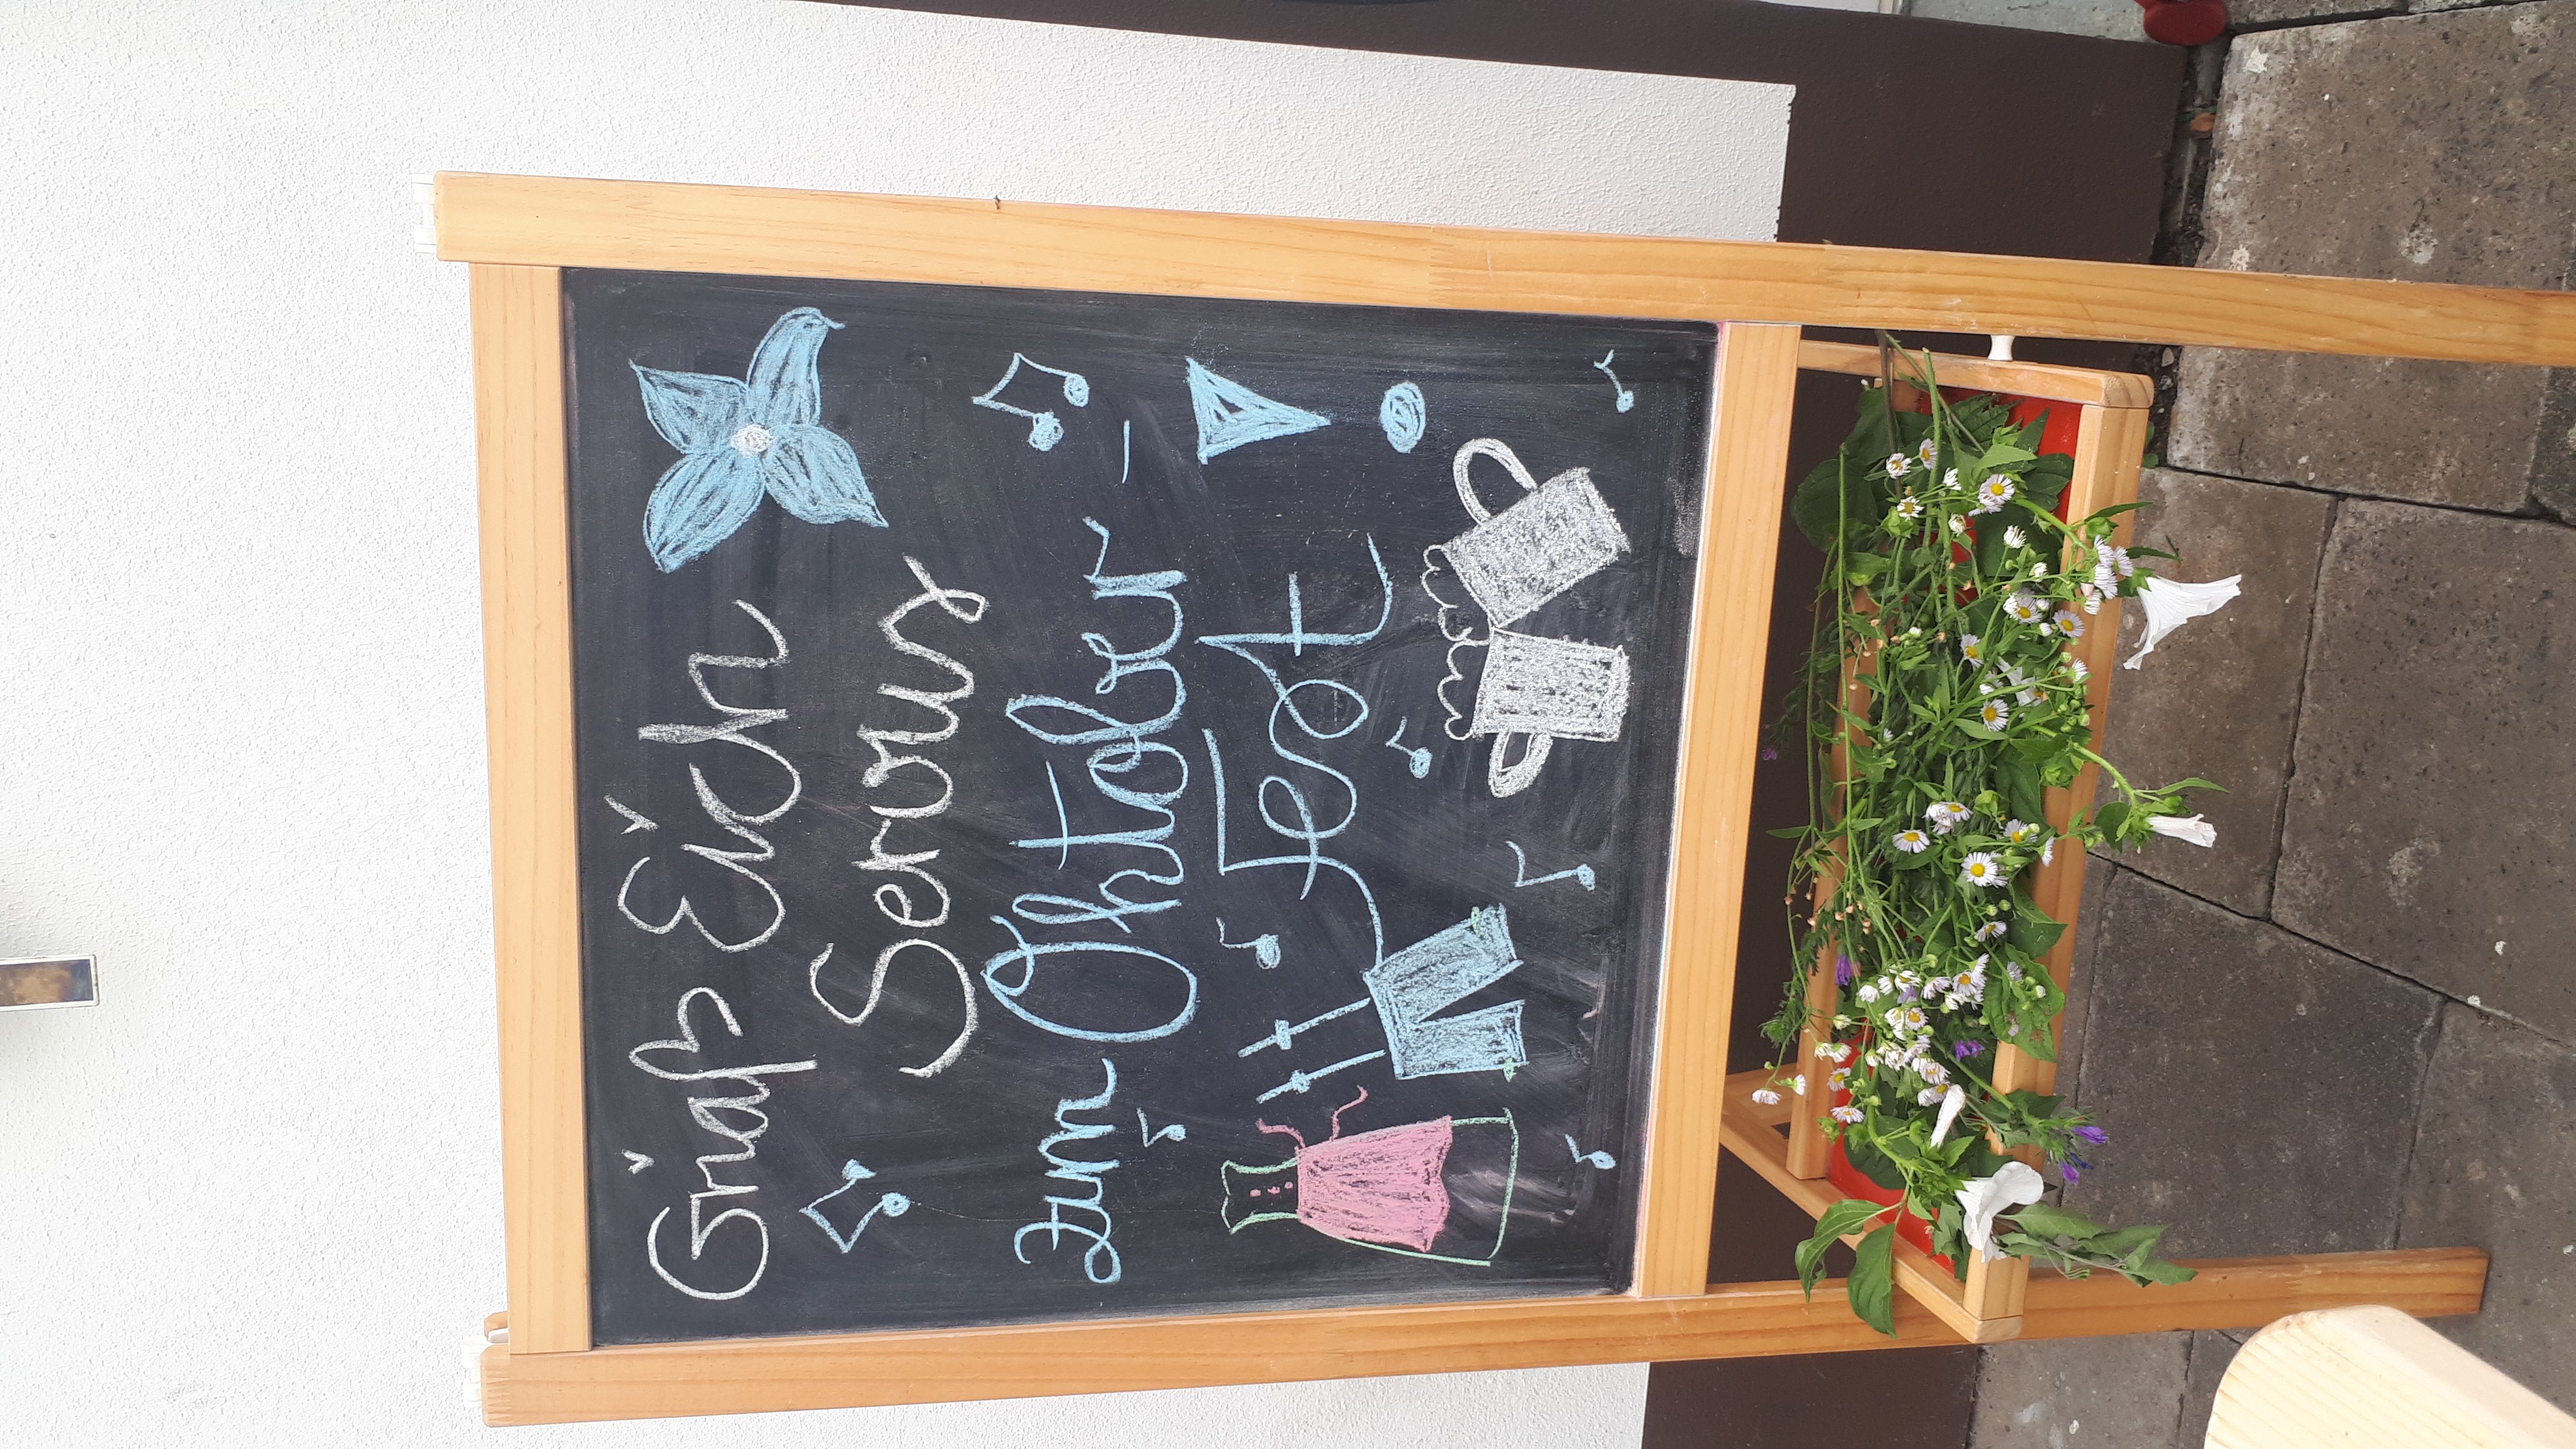 Griaß Eich
Servus
zum Oktober -
Fest !